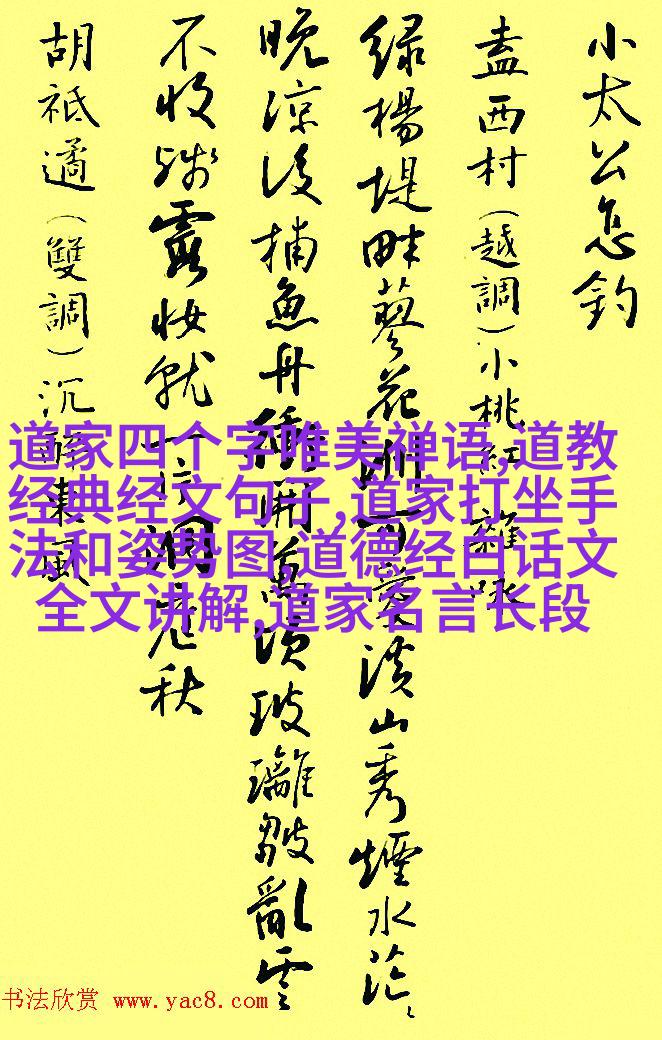 小太公怠釣
盍西村（越調）小桃紅 雜咏
緑楊堤畔蓼花洲可愛溪山秀煙水茫〻
晚涼後捕魚舟衝開萬頃玻瓈皺亂雲
不收殘霞妝就一片洞庭秋
胡祗遹（雙調）沉醉東風
道家四个字唯美禅语,道教
经典经文句子,道家打坐手
法和姿势图,道德经白话文
全文讲解,道家名言长段
书法欣赏 www.yac8.com